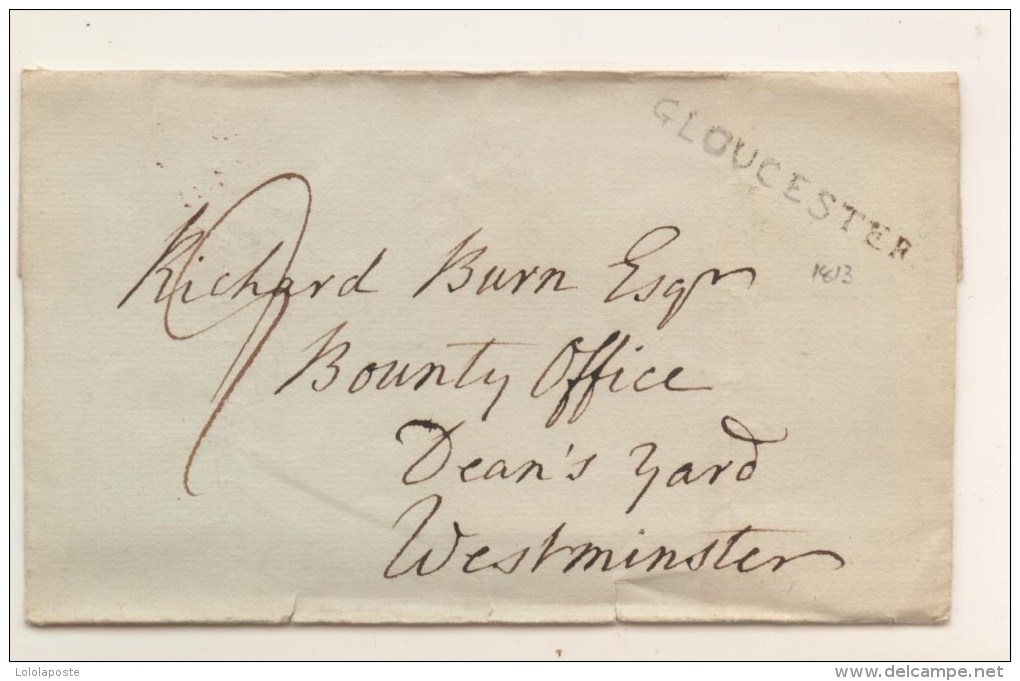 GLOUCESTER
1813
Richard Burn Esqr
Bounty Office
Dean's Yard
Westminster
Lololaposte
www.delcampe.net